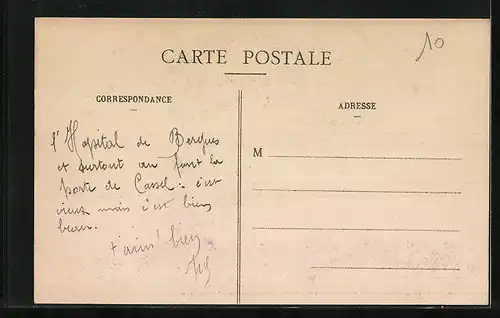 CARTE POSTALE
10
CORRESPONDANCE
ADRESSE
M
l'Hopital de Bergues
et surtout au fond la
porte de Cassel : c'est
vieux mais c'est bien
beau.
t'aim' bien